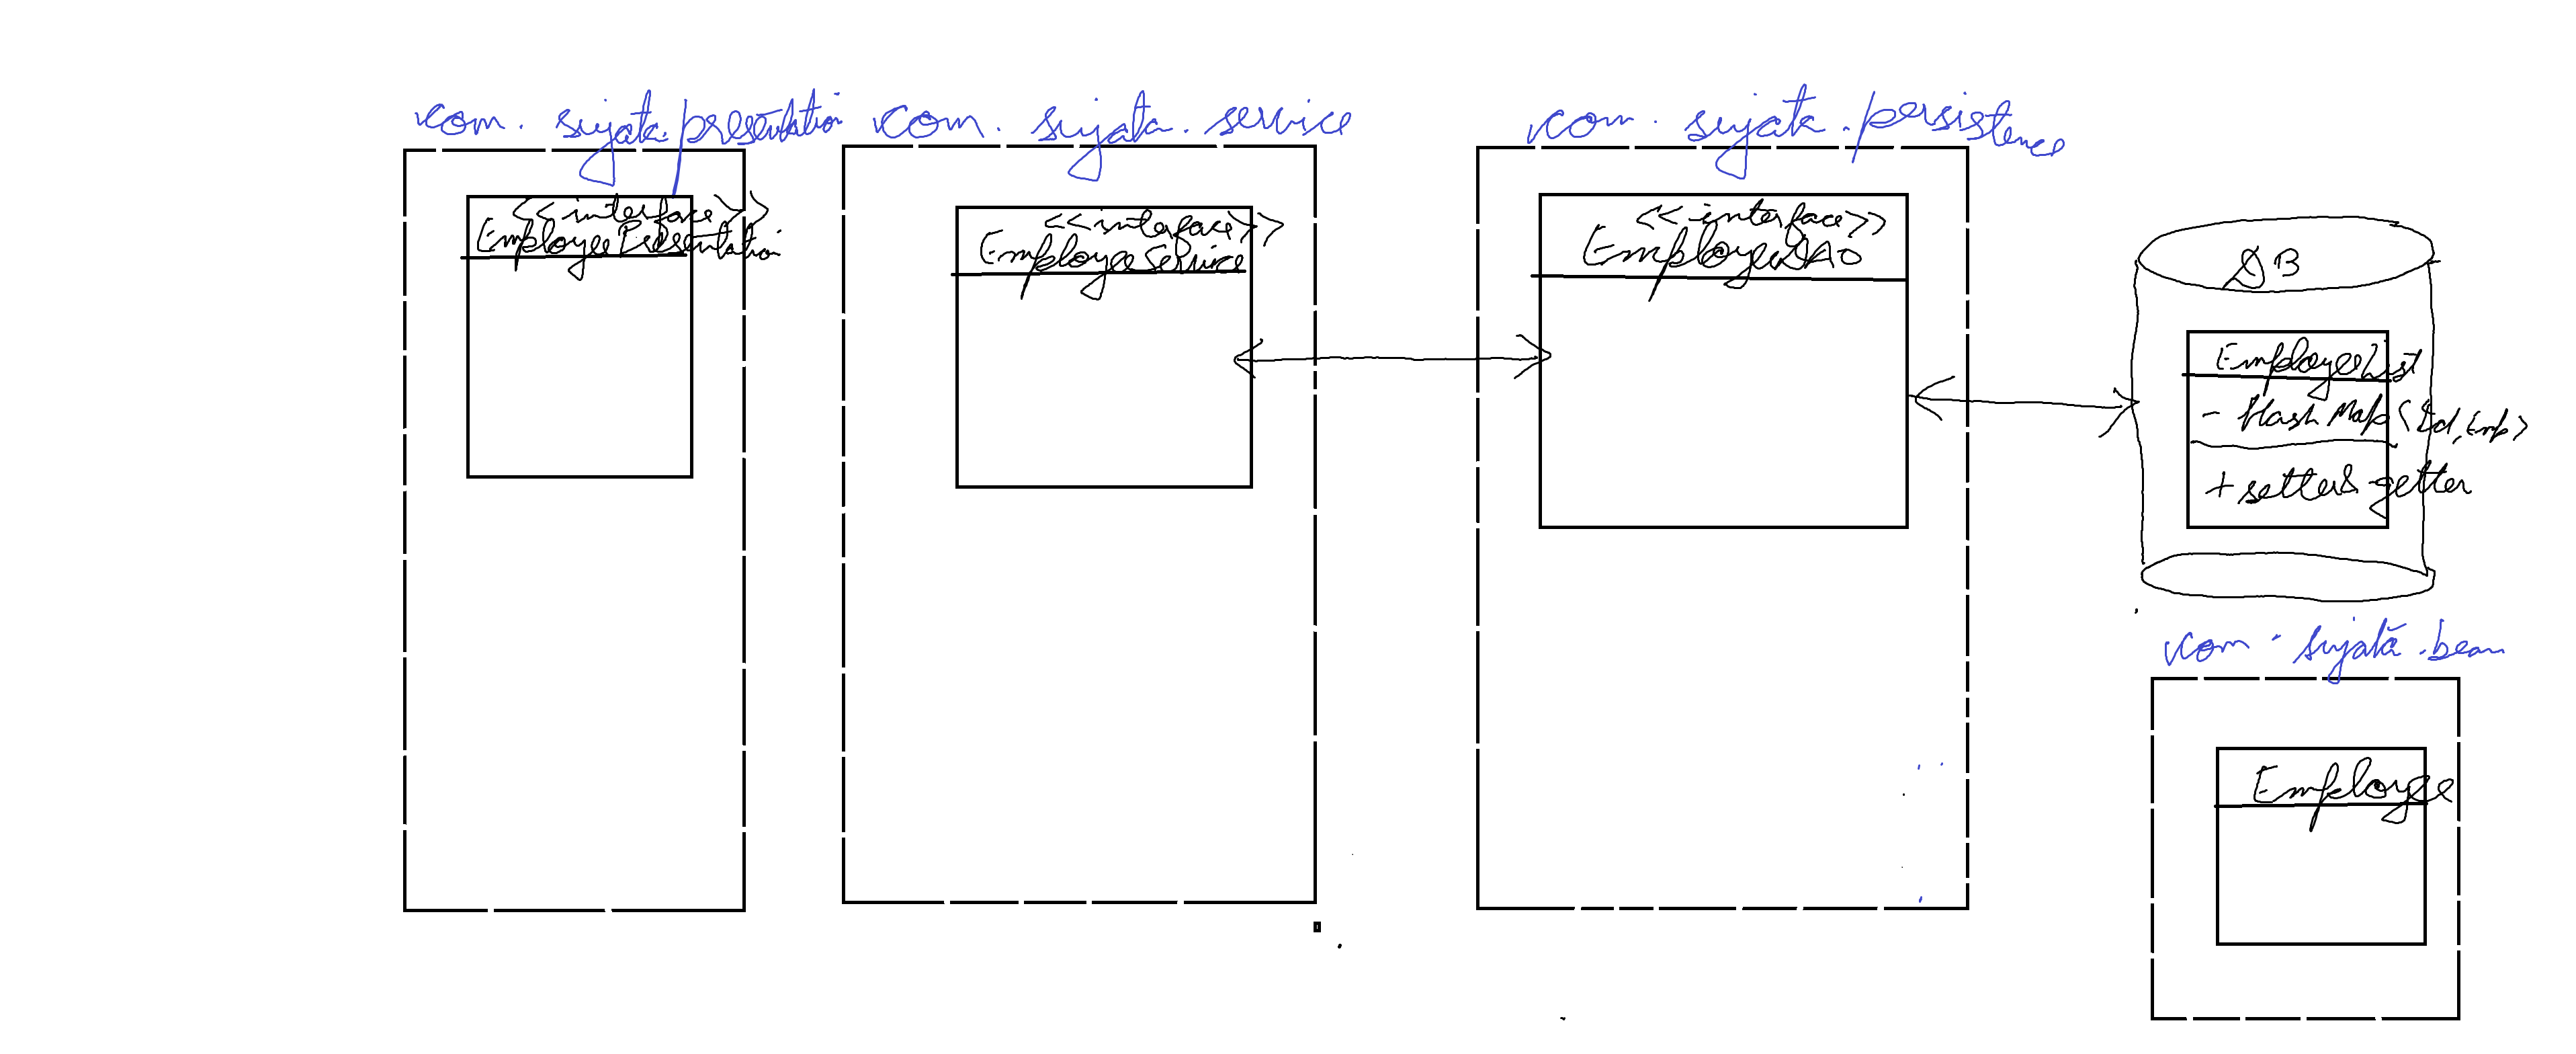 com. sujata.presentation
<<interface>>
EmployeePresentation
com. sujata. service
<<interface>>
EmployeeService
com. sujata. persistence
<<interface>>
EmployeeDAO
DB
EmployeeList
- HashMap<Id, Emp>
+ setter& getter
com. sujata .bean
Employee